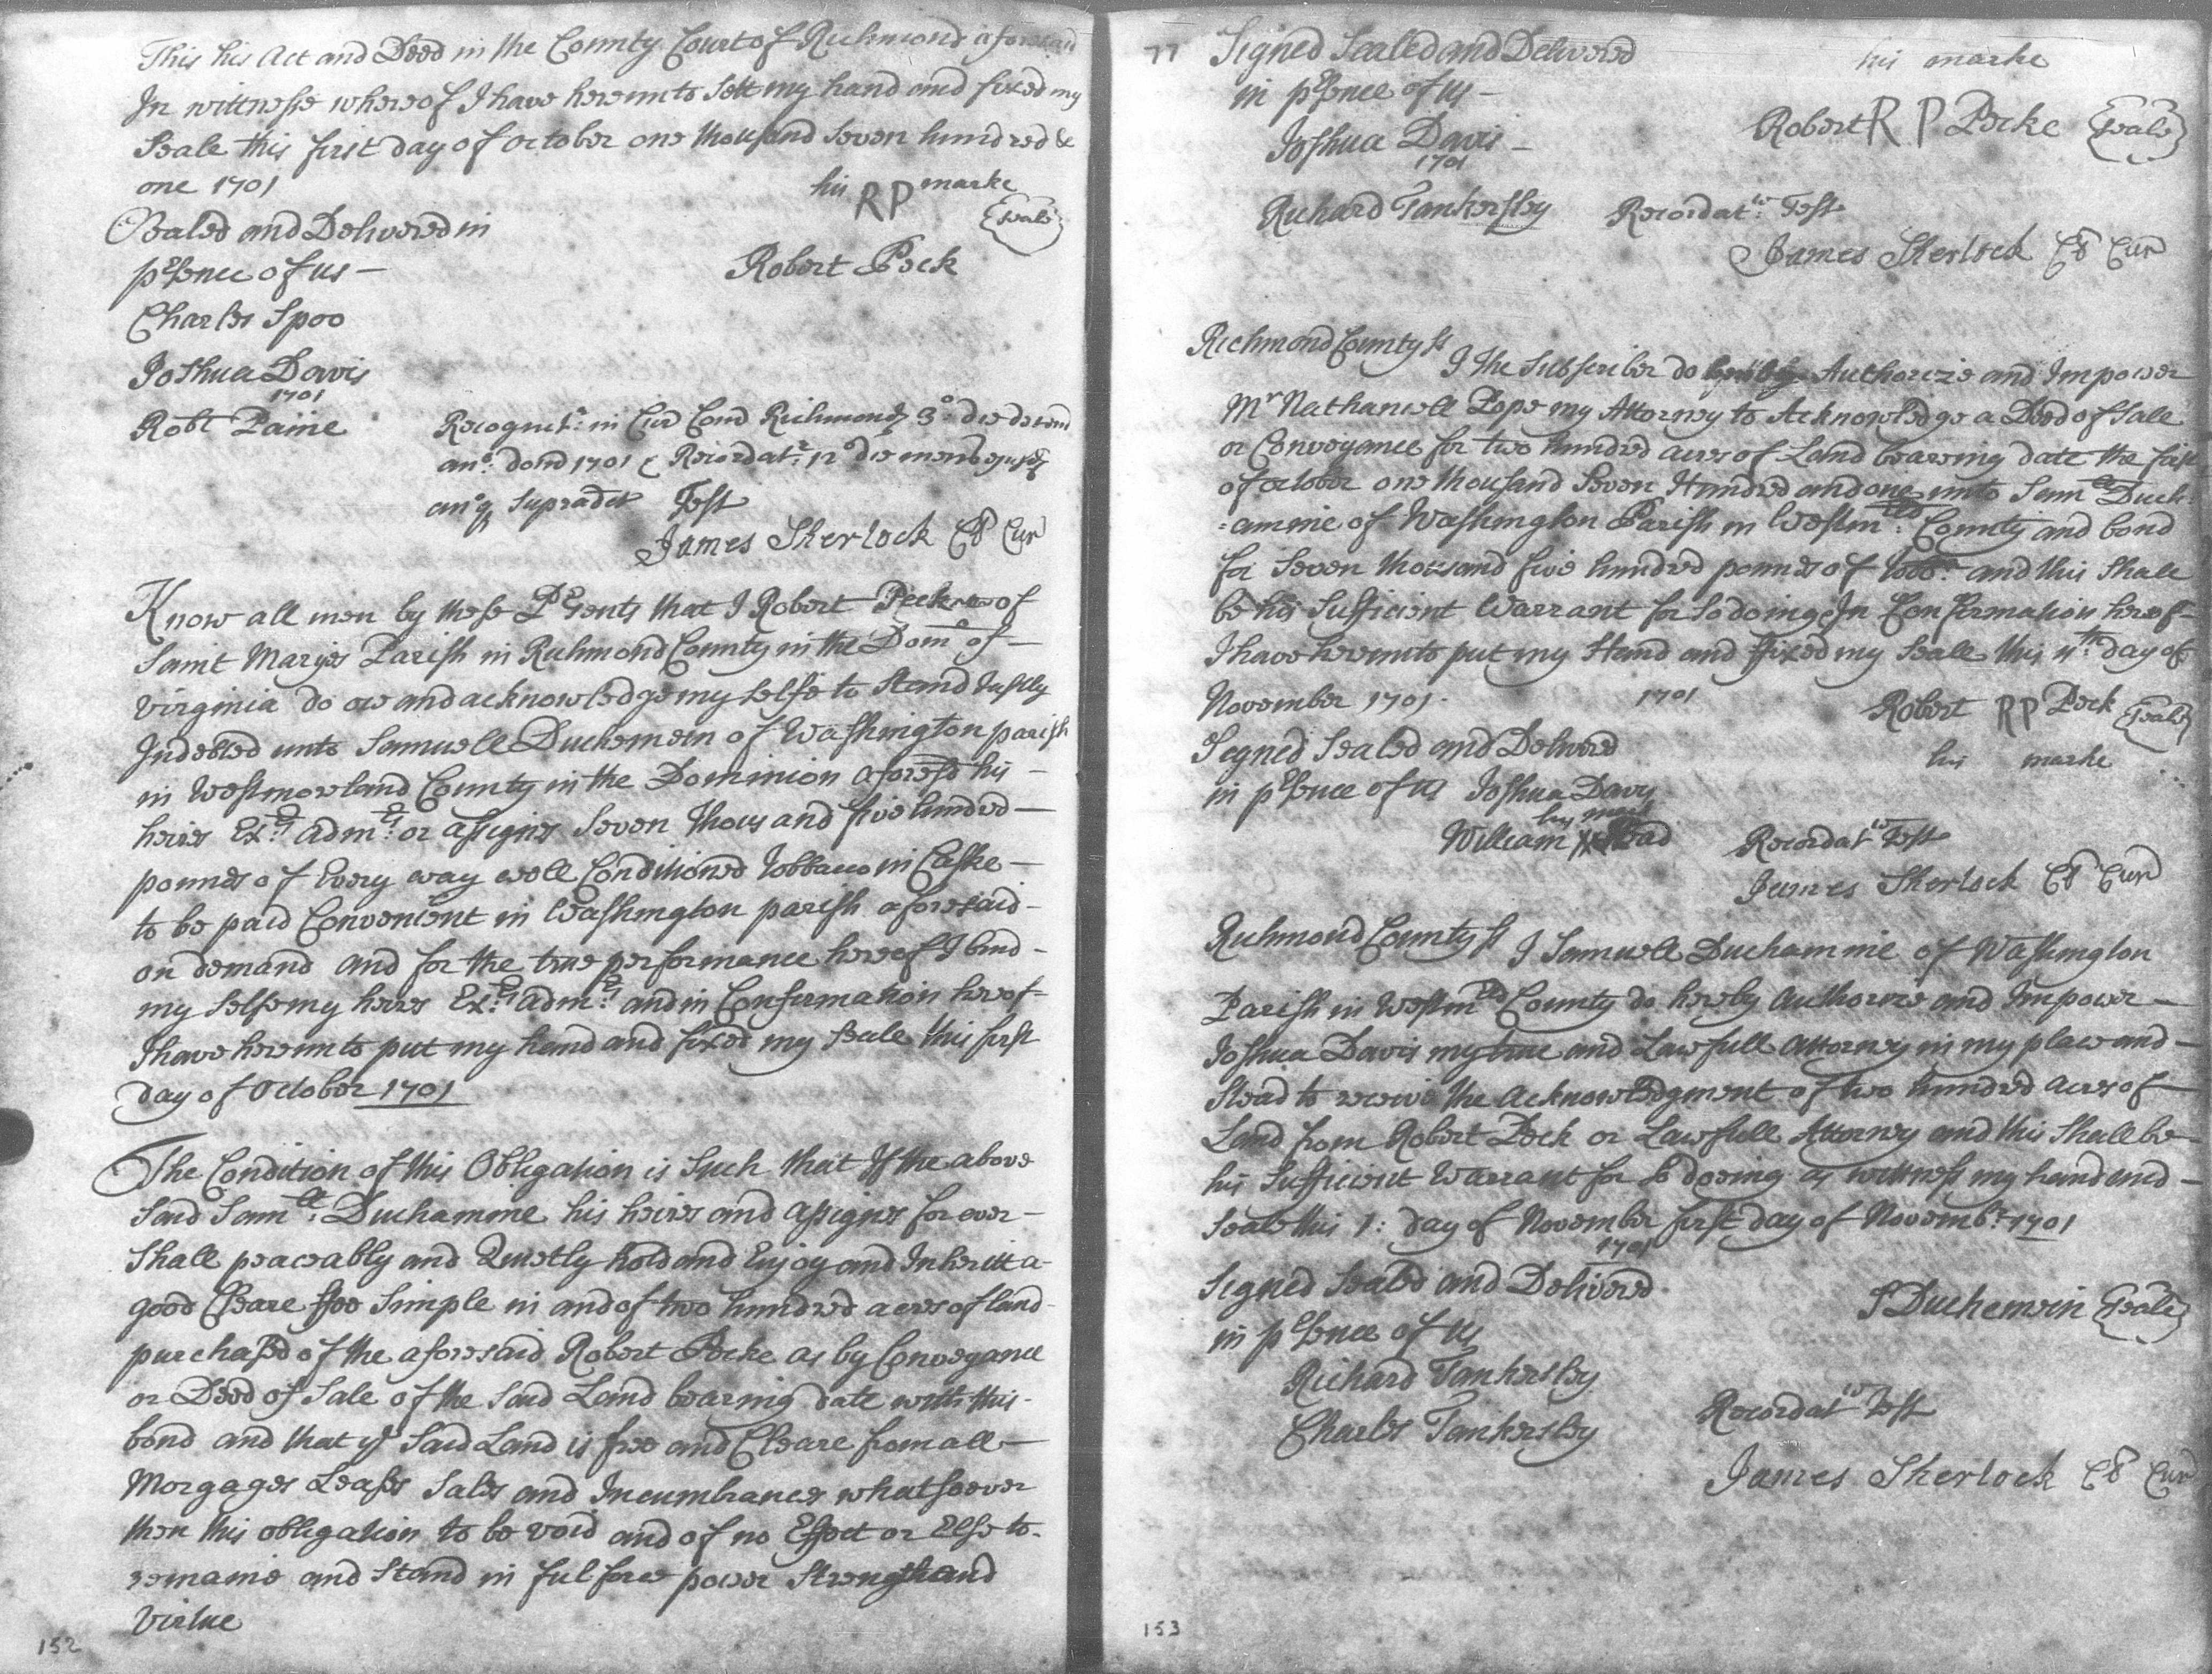 This his Act and Deed in the County Court of Richmond aforesaid
In wittnesse whereof I have hereunto sett my hand and fixed my
Seale this first day of October one thousand Seven hundred &
one 1701
his RP marke
Seale
Sealed and Delivered in
p^rsence of us —
Robert Peck
Charles Spoo
Joshua Davis
1701
Rob^t Paine
Recognit^r: in Cur Com^d Richmond 3° die
an° dom 1701 & Recordat^r: 12° die mensis
an°q supradct Test
James Sherlock Cl Cur
Know all men by these P^rsents that I Robert Peck of
Saint Maryes Parish in Richmond County in the Dom^o of —
Virginia do ow and acknowledge my selfe to Stand Justly
Indebted unto Samuell Duchemein of Washington parish
in Westmorland County in the Dominion aforesd his —
heires Ex^rs: adm^rs: or assignes Seven thousand five hundred —
pounds of Every way well Conditioned tobbacco in Caske —
to be paid Convenient in Washington parish aforesaid —
on demand and for the true performance hereof I bind —
my selfe my heires Ex^rs: adm^rs: and in Confirmation hereof —
I have hereunto put my hand and fixed my Seale this first
day of October 1701
The Condition of this Obligation is Such that If the above
Said Sam^ll: Duchamine his heires and assignes for ever —
Shall peaceably and Quietly hold and Enjoy and Inheritt a —
good Cleare ffee Simple in and of two hundred acres of land —
purchased of the aforesaid Robert Pecke as by Conveyance
or Deed of Sale of the Said Land bearing date with this —
bond and that y^e Said Land is free and Cleare from all —
Morgages Leases Sales and Incumbrances whatsoever
then this obligation to be void and of no Effect or Else to —
remaine and Stand in full force power Strength and
Virtue
152
77
Signed Sealed and Delivered
in p^rsence of us —
his marke
Robert R P Pecke Seale
Joshua Davis —
1701
Richard Tankersley
Recordat^r: Test
James Sherlock Cl Cur
Richmond County ss
I the Subscriber do Authorize and Impower
M^r Nathaniell Pope my Attorney to Acknowledge a Deed of Sale
or Conveyance for two hundred acres of Land bearing date the first
of October one thousand Seven Hundred and one unto Sam^ll Duch
:amine of Washington Parish in Westm^rld: County and bond
for Seven thousand five hundred pounds of tobb^o: and this Shall
be his Sufficient Warrant for So doing In Confirmation hereof —
I have hereunto put my Hand and ffixed my Seale this 11^th: day of
November 1701.
1701
Robert RP Peck Seale
his marke
Signed Sealed and Delivered
in p^rsence of us Joshua Davis
his mark
William
Recordat^r Test
James Sherlock Cl Cur
Richmond County ss
I Samuell Duchamine of Washington
Parish in Westm^rld County do hereby Authorize and Impower —
Joshua Davis my true and Lawfull Attorney in my place and —
Stead to receive the Acknowledgment of two hundred acres of —
Land from Robert Peck or Lawfull Attorney and this Shall be —
his Sufficient Warrant for So doeing as wittness my hand and —
Seale this 1: day of November first day of Novemb^r: 1701
1701
Signed Sealed and Delivered
in p^rsence of us
S Duchemein Seale
Richard Tankersley
Charles Tankersley
Recordat^r Test
James Sherlock Cl Cur
153